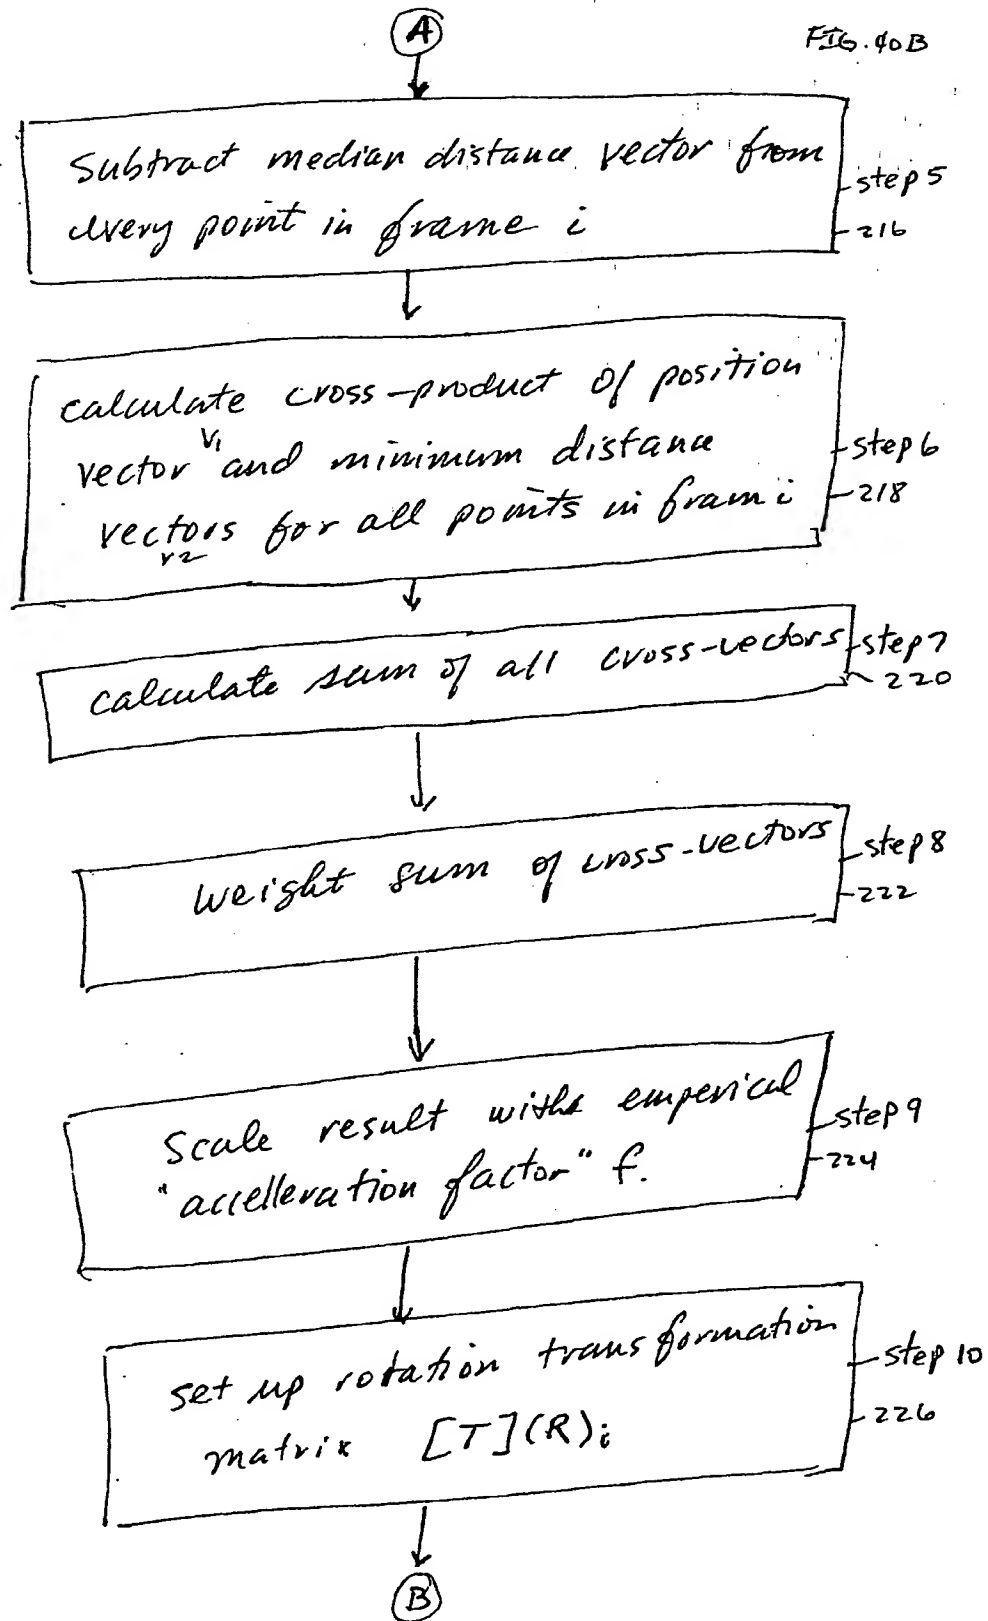 A
FIG. 40B
Subtract median distance vector from
every point in frame i
step 5
216
calculate cross-product of position
vector V1 and minimum distance
vectors v2 for all points in fram i
step 6
218
calculate sum of all cross-vectors
step 7
220
weight sum of cross-vectors
step 8
222
Scale result with empericul
"accelleration factor" f.
step 9
224
set up rotation transformation
matrix [T](R)i
step 10
226
B